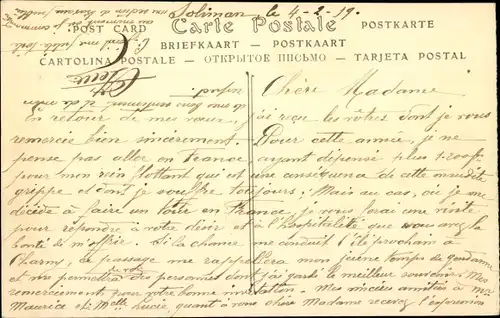 Solinan le 4-2-19.
POST CARD Carte Postale POSTKARTE
BRIEFKAART - POSTKAART
CARTOLINA POSTALE - ОТКРЫТОЕ ПИСЬМО - TARJETA POSTAL
Chère Madame
En retour de mes vœux, j'ai reçu les vôtres dont je vous
remercie bien sincèrement. Pour cette année, je ne
pense pas aller en France, ayant dépensé plus
pour mon rein flottant qui est une conséquence de cette maudite
grippe et dont je souffre toujours. Mais au cas, où je me
décide à faire un tour en France, je vous ferai une visite
pour répondre à votre désir et à l'hospitalité que vous avez la
bonté de m'offrir. Si la chance me conduit l'été prochain à
Charmy, ce passage me rappellera mon jeune temps de gendarme
et me permettra de voir des personnes dont j'ai gardé le meilleur souvenir. Mes
remerciements pour votre bonne invitation. Mes sincères amitiés à Mr
Maurice et Melle Lucie, quant à vous chère Madame recevez l'expression
de mes bons sentiments et de mon